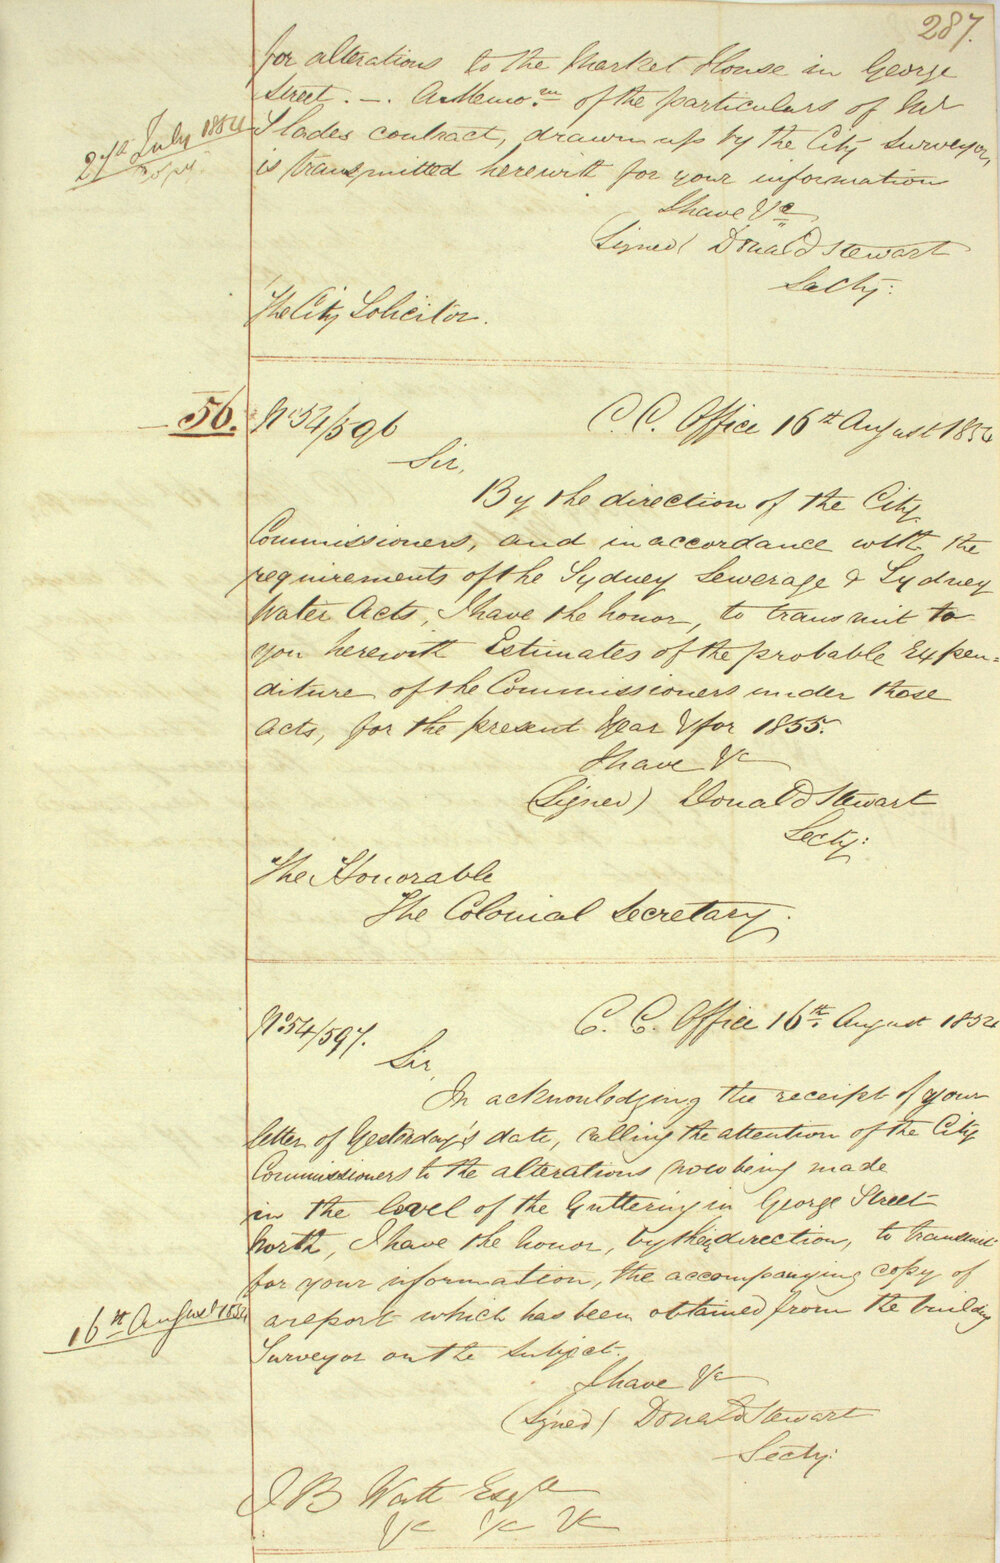 287.
for alterations to the Market House in George
Street. —. A Memo.m of the particulars of Mr
27th July 1854
Slades contract, drawn up by the City Surveyor,
Copy.
is transmitted herewith for your information
I have &c
(Signed) Donald Stewart
Secty:
The City Solicitor.
56.
No 54/596
C. C. Office 16th August 1854
Sir,
By the direction of the City
Commissioners, and in accordance with the
requirements of the Sydney Sewerage & Sydney
Water Acts, I have the honor, to transmit to
you herewith Estimates of the probable Expen=
diture of the Commissioners under those
Acts, for the present Year & for 1855.
I have &c
(Signed) Donald Stewart
Secty:
The Honorable
The Colonial Secretary.
No 54/597.
C. C. Office 16th. August 1854
Sir,
In acknowledging the receipt of your
letter of Yesterday's date, calling the attention of the City
Commissioners to the alterations now being made
in the level of the Guttering in George Street
North, I have the honor, by their direction, to transmit
for your information, the accompanying copy of
16th August 1854
a report which has been obtained from the building
Surveyor on the subject.
I have &c
(Signed) Donald Stewart
Secty:
J B Watt Esqre
&c &c &c